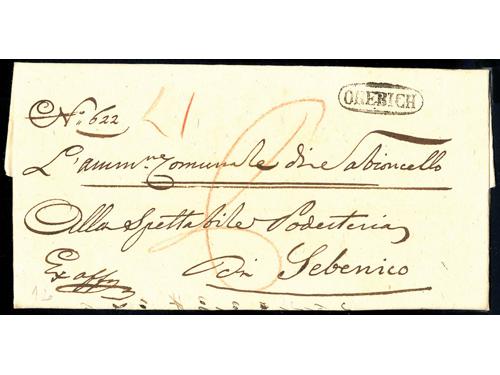 OREBICH
N.° 622
L'amm.ne Comunale di Sabioncello
Alla Spettabile Podesteria
di Sebenico
Ex offo